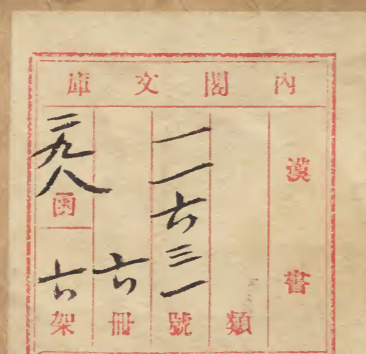 內閣文庫
漢書
類
一一六三一號
六冊
三九八函
六架